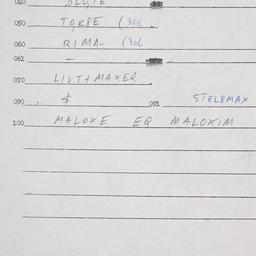 050 TOKSE (306
060 RIMA- (306
061 -
070 LIST+MAXER
090 $ 091 STEL8MAX
100 MALOXE EQ MALOXIM